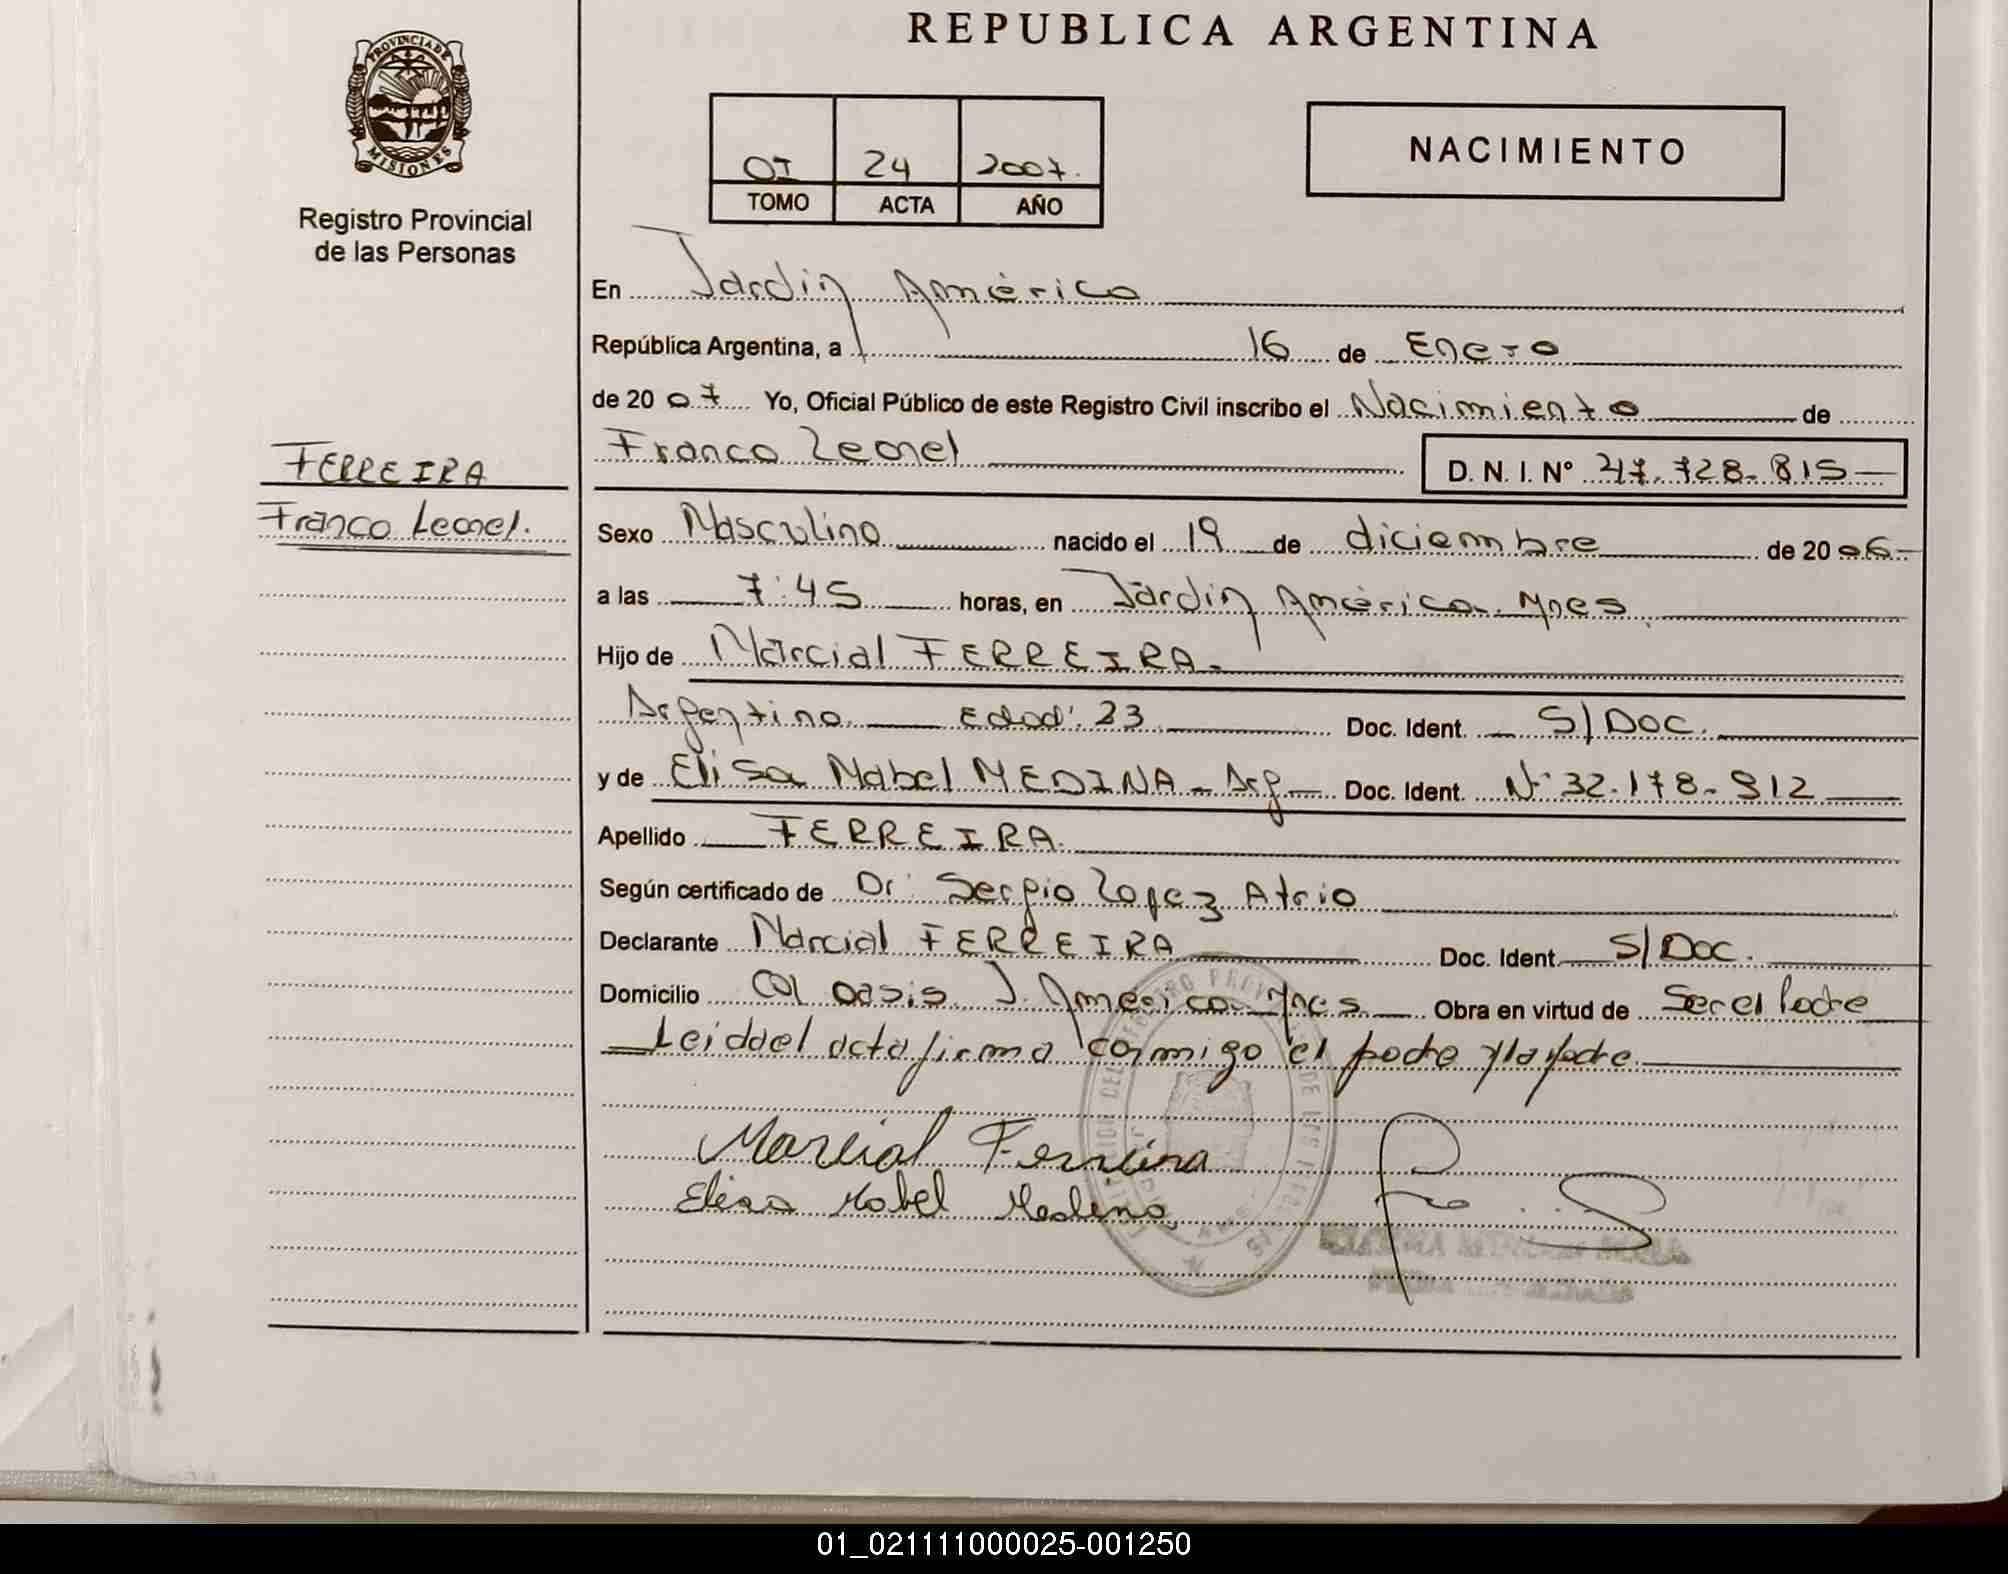 REPUBLICA ARGENTINA
PROVINCIA DE
MISIONES
Registro Provincial
de las Personas
OI 24 2007.
TOMO ACTA AÑO
NACIMIENTO
En Jardin América
República Argentina, a 16 de Enero
de 2007 Yo, Oficial Público de este Registro Civil inscribo el Nacimiento de
Franco Leonel D. N. I. Nº 47.728.815
FERREIRA
Franco Leonel.
Sexo Masculino nacido el 19 de diciembre de 2006
a las 7:45 horas, en Jardin América Mnes
Hijo de Marcial FERREIRA
Argentino Edad: 23 Doc. Ident. S/DOC.
y de Elisa Mabel MEDINA - Arg Doc. Ident. Nº 32.178.912
Apellido FERREIRA
Según certificado de Dr. Sergio Lopez Atrio
Declarante Marcial FERREIRA Doc. Ident. S/Doc.
Domicilio Col Oasis J. América Mnes Obra en virtud de Ser el Padre
Leida el acta firma conmigo el padre y la padre
Marcial Ferreira
Elisa Mabel Medina
01_021111000025-001250